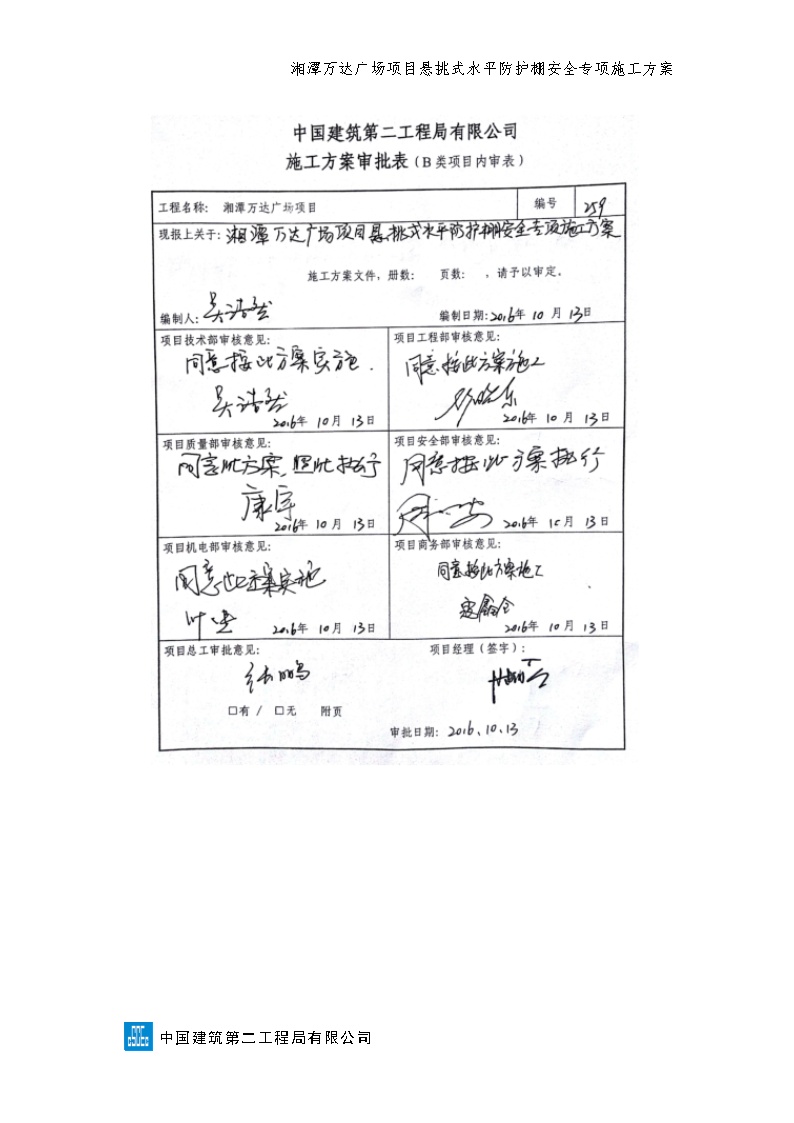 湘潭万达广场项目悬挑式水平防护棚安全专项施工方案
中国建筑第二工程局有限公司
施工方案审批表（B类项目内审表）
工程名称： 湘潭万达广场项目 编号 259
现报上关于：湘潭万达广场项目悬挑式水平防护棚安全专项施工方案
施工方案文件，册数： 页数： ，请予以审定。
编制人：吴浩 编制日期：2016年 10 月 13日
项目技术部审核意见：
同意按此方案实施.
吴浩
2016年 10月 13日
项目工程部审核意见：
同意按此方案施工
2016年 10 月 13日
项目质量部审核意见：
同意此方案,照此执行
康宇
2016年 10月 13日
项目安全部审核意见：
同意按此方案执行
2016年 10月 13日
项目机电部审核意见：
同意此方案实施
叶
2016年 10月 13日
项目商务部审核意见：
同意按此方案施工
2016年 10月 13日
项目总工审批意见：
鹏
□有 / □无 附页
项目经理（签字）：
审批日期：2016.10.13
中国建筑第二工程局有限公司